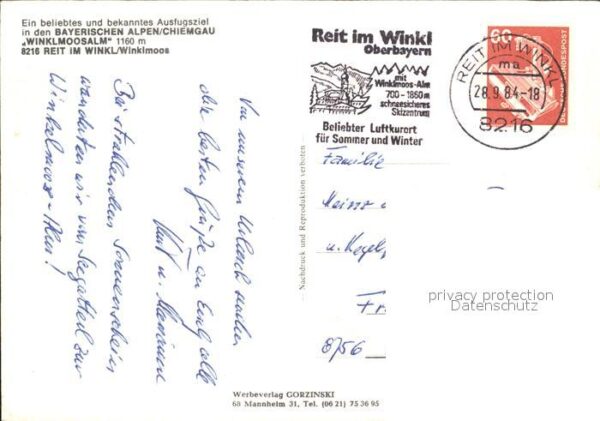 Ein beliebtes und bekanntes Ausfugsziel
in den BAYERISCHEN ALPEN/CHIEMGAU
„WINKLMOOSALM" 1160 m
8216 REIT IM WINKL/Winklmoos
Von unserem Urlaub senden
die besten Grüße an Euch alle
Kurt u.
Bei strahlendem Sonnenschein
wanderten wir von Seegatterl zur
Winkelmoos-Alm!
Werbeverlag GORZINSKI
68 Mannheim 31, Tel. (06 21) 75 36 95
Nachdruck und Reproduktion verboten
Reit im Winkl
Oberbayern
mit
Winklmoos-Alm
700-1850m
schneesicheres
Skizentrum
Beliebter Luftkurort
für Sommer und Winter
REIT IM WINKL
ma
28.9.84-18
8216
60
DEUTSCHE BUNDESPOST
Familie
Heinz
u.
Fr
8756
privacy protection
Datenschutz